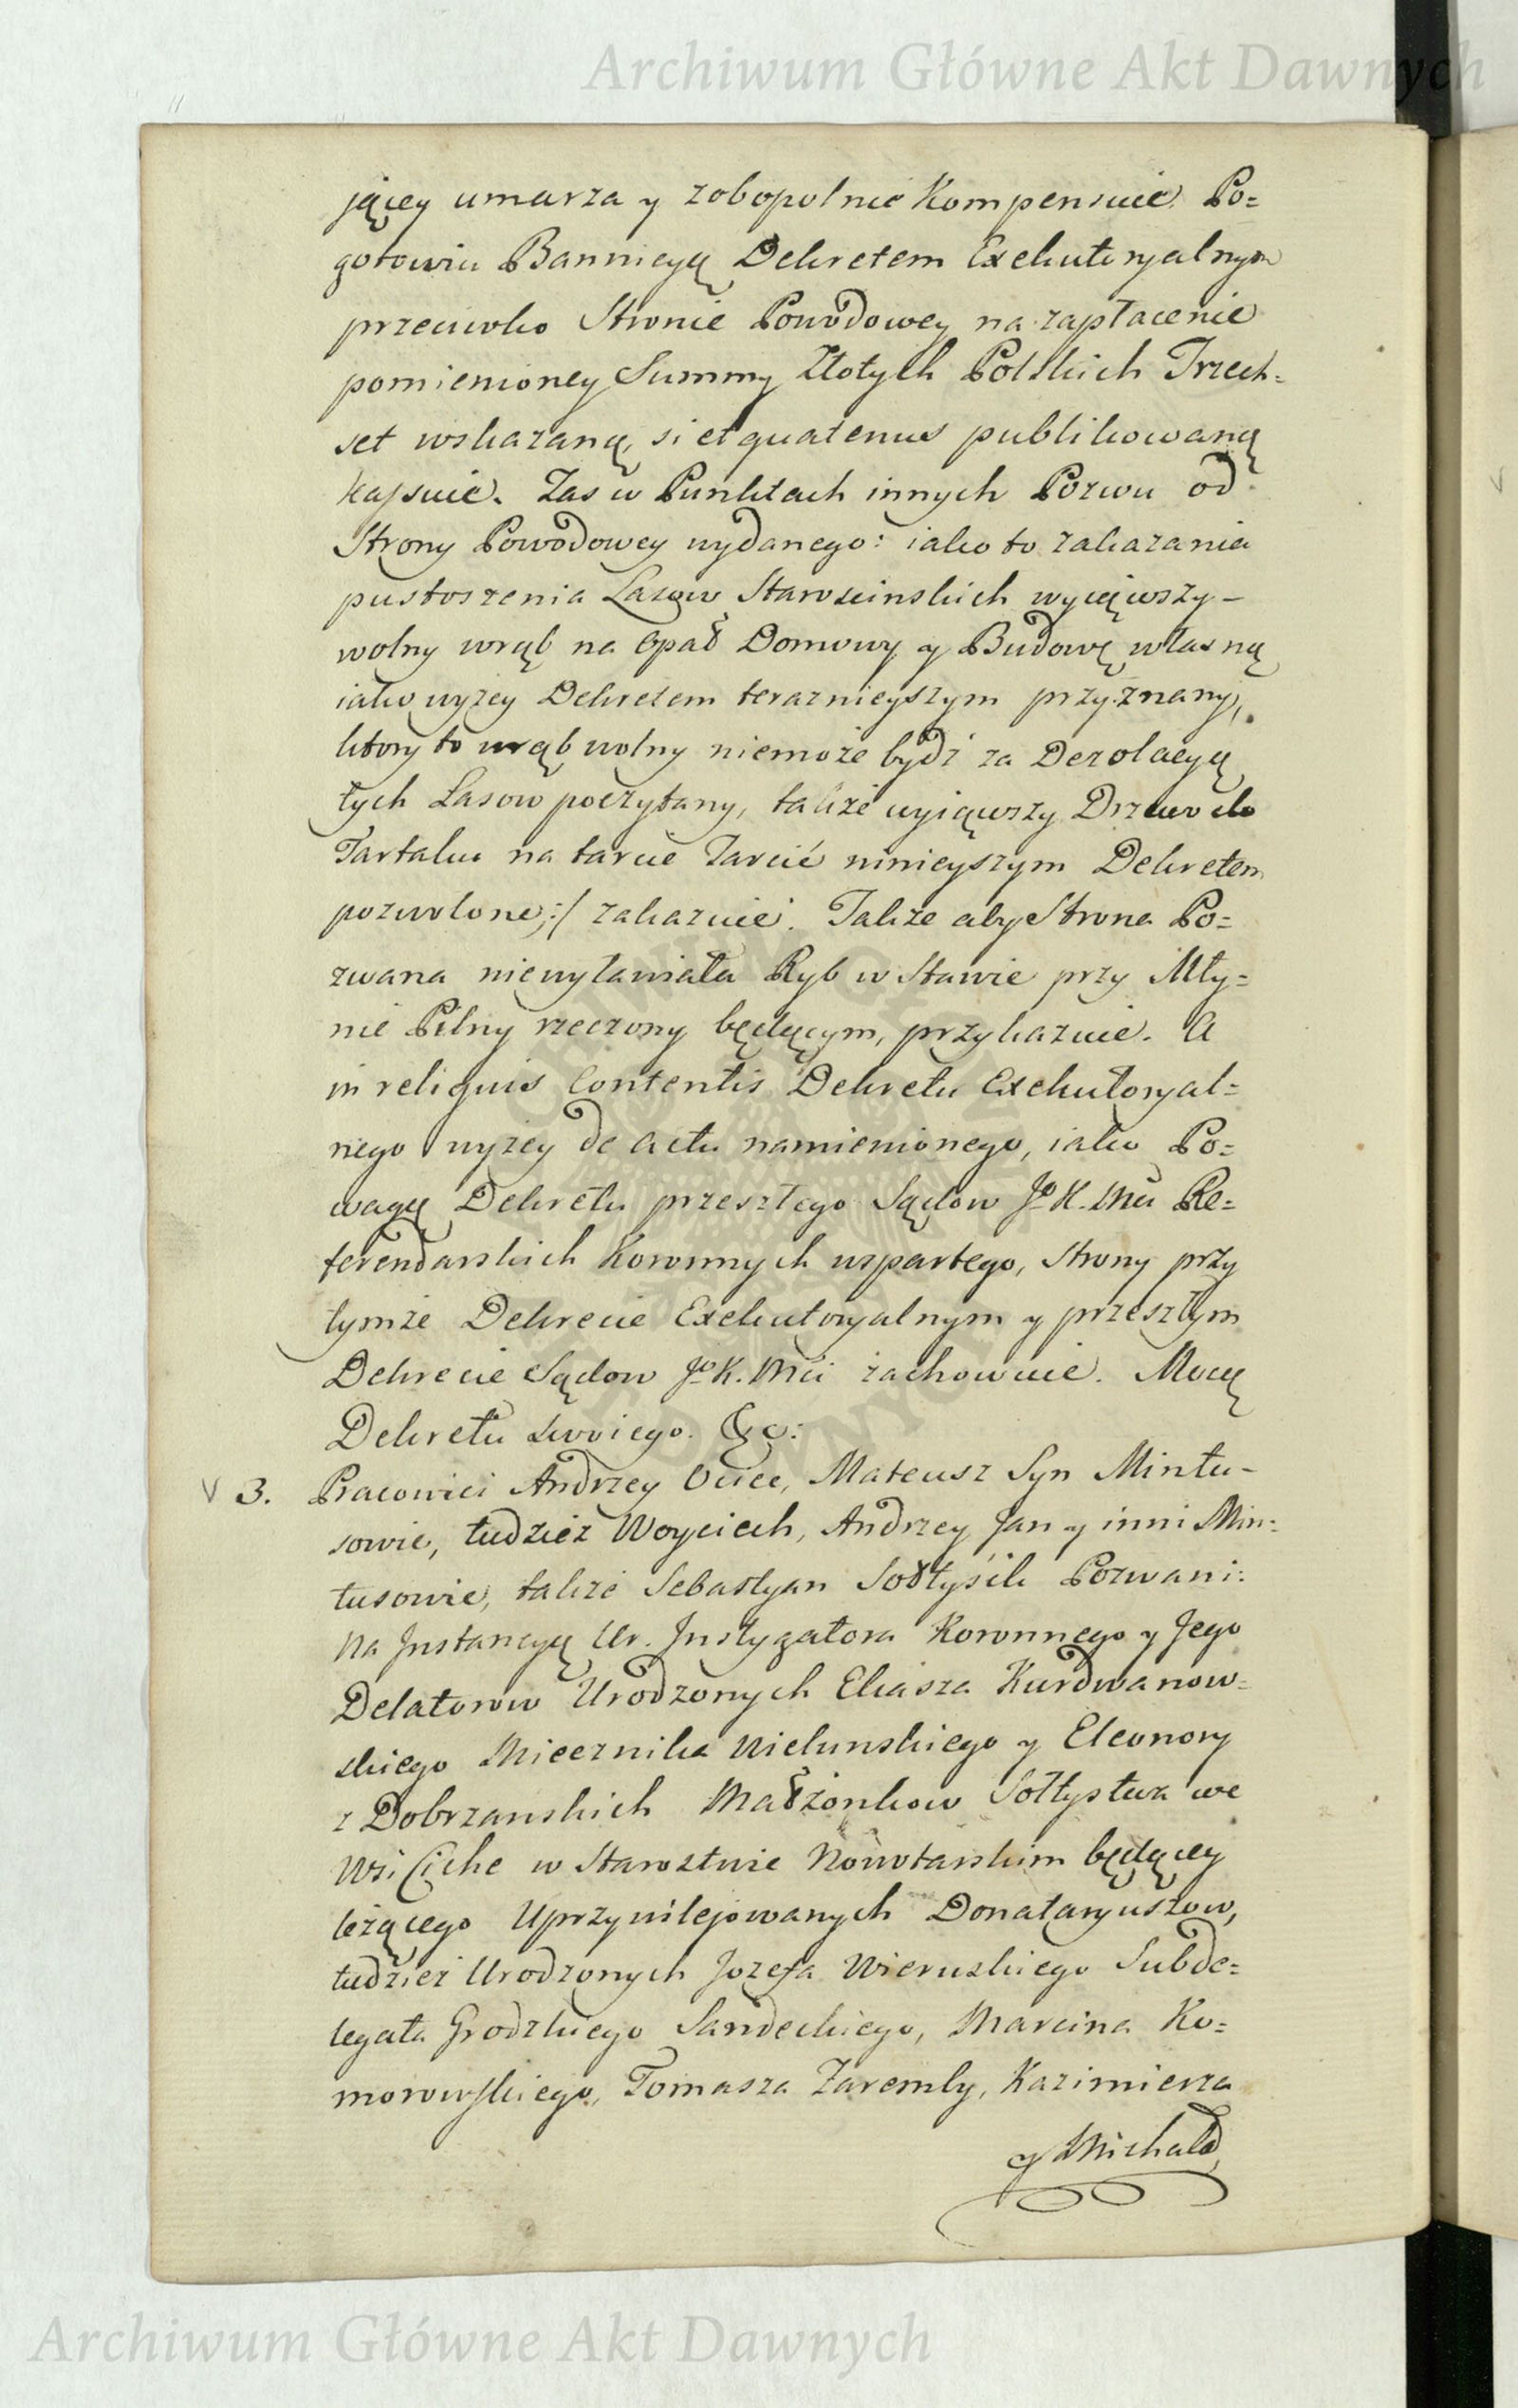 Archiwum Główne Akt Dawnych
jącey umarza y zobopolnie Kompensuie. Po=
gotowiu Bannicyą Dekretem Exekutoryalnym
przeciwko Stronie Powodowey na zapłacenie
pomienioney Summy Złotych Polskich Trzech=
set wskazaną, si et quatenus publikowaną
kassuie. Zas w Punktach innych Pozwu od
Strony Powodowey wydanego: iako to zakazania
pustoszenia Lasow Staroscinskich wyiąwszy –
wolny wrąb na Opał Domowy y Budowę własną
iako wyzey Dekretem teraznieyszym przyznany,
ktory to wrąb wolny niemoże bydź za Dezolacyą
tych Lasow poczytany, także wyiąwszy Drzewo do
Tartaku na tarcie Tarcić ninieyszym Dekretem
pozwolone;/ zakazuie. Także aby Strona Po=
zwana niewyławiała Ryb w Stawie przy Mły=
nie Pilny rzeczony będącym, przykazuie. A
in reliquis Contentis Dekretu Exekutoryal=
nego wyzey de Actu namienionego, iako Po=
wagą Dekretu przeszłego Sądow Jº K. Mci Re=
ferendarskich Koronnych wspartego, Strony przy
tymże Dekrecie Exekutoryalnym y przeszłym
Dekrecie Sądow Jº K. Mci zachowuie. Mocą
Dekretu swoiego. &c:
V 3. Pracowici Andrzey Ociec, Mateusz Syn Mintu-
sowie, tudzież Woyciech, Andrzey Jan y inni Min=
tusowie, także Sebastyan Sołtysik Pozwani:
Na Instancyą Ur. Instygatora Koronnego y Jego
Delatorow Urodzonych Eliasza Kurdwanow=
skiego Miecznika Wielunskiego y Eleonory
z Dobrzanskich Małżonkow Sołtystwa we
Wsi Ciche w Starostwie Nowotarskim będącey
leżącego Uprzywilejowanych Donataryuszow,
tudzież Urodzonych Jozefa Wieruskiego Subde=
legata Grodzkiego Sandeckiego, Marcina Ko=
morowskiego, Tomasza Zaremby, Kazimierza
y Michała
Archiwum Główne Akt Dawnych